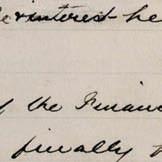 interest he
of the Financ
finally